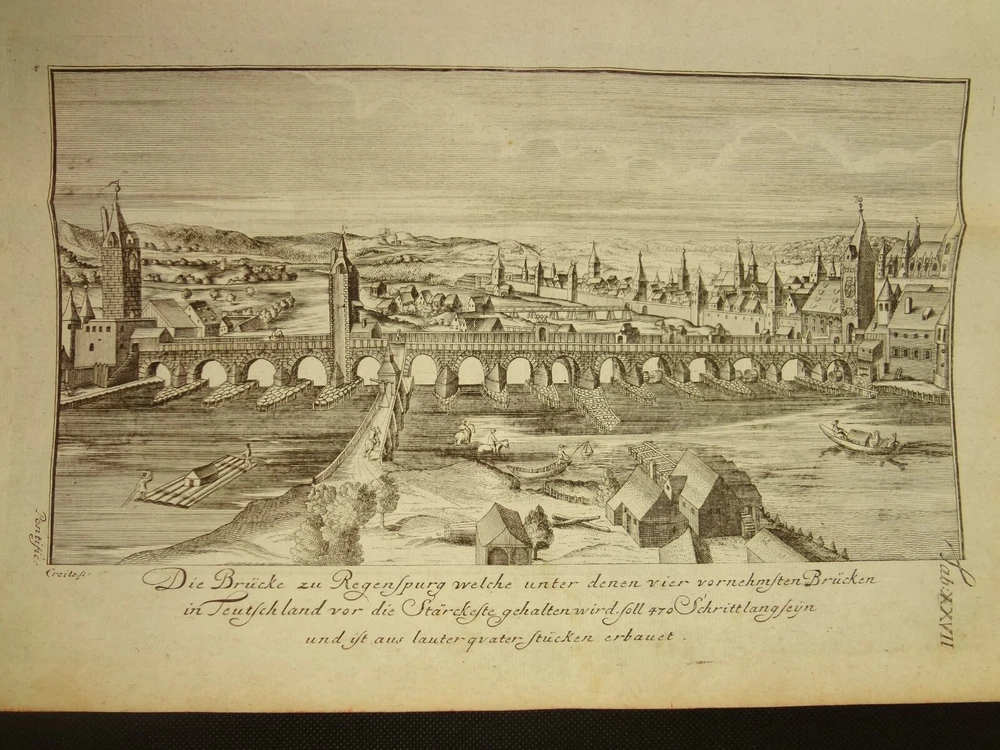 Pontific.
Tab. XXXVII
Die Brücke zu Regenspurg welche unter denen vier vornehmsten Brücken
in Teutschland vor die Stärckeste gehalten wird, soll 470 Schritt lang seÿn
und ist aus lauter qvater-stücken erbauet.